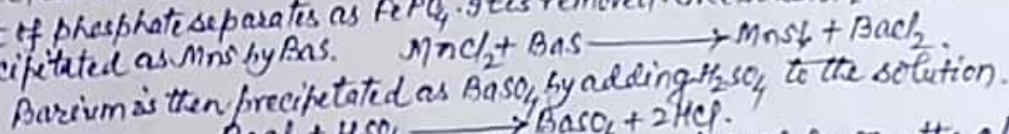 of phosphate separates as FePO4. It is removed
cipitated as MnS by BaS. MnCl2 + BaS ⟶ MnS↓ + BaCl2.
Barium is then precipetated as BaSO4 by adding H2SO4 to the solution.
⟶ BaSO4 + 2HCl.